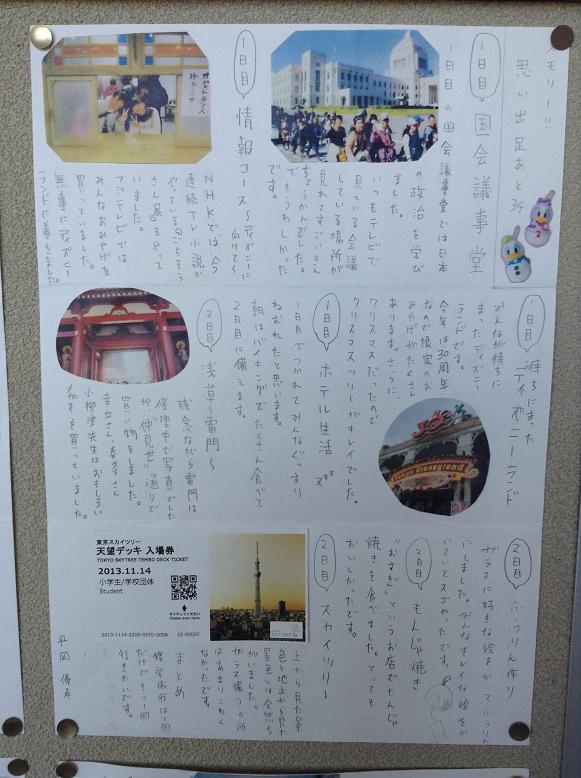 メモリー!!
思い出足あと34
1日目 国会議事堂
1日目の国会議事堂では日本
の政治を学び
ました。
いつもテレビで
見ている会議
している場所が
見れてすごいさん
でもうれしかった
です。
1日目 情報コース〜ディズニーに
向けて〜
NHKでは今
連続テレビ小説で
やっているごちそう
さん展もやって
いました。
フジテレビでは
みんなおみやげを
買っていました。
無事にディズニー
ランドに着きました。
1日目 待ちにまった
ディズニーランド
みんなが待ちに
まったディズニー
ランドです。
今年は30周年
なので限定のお
みやげがたくさん
あります。さらに、
クリスマスだったので
クリスマスツリーがキレイでした。
1日目 ホテル生活 zzz
1日目でつかれてみんなぐっすり
ねむれたと思います。
朝はバイキングでたくさん食べて
2日目に備えます。
2日目 浅草〜雷門〜
残念ながら雷門は
修理中で写真でした
が「仲見世」通りで
買い物をしました。
小柳津先生はおもしろい
メガネを買っていました。
2日目 ふうりん作り
ガラスに好きな絵をかいてふうりん
にしました。みんなキレイな絵をか
いていてスゴかったです。
2日目 もんじゃ焼き
"おすぎ"というお店でもんじゃ
焼きを食べました。とっても
おいしかったです。
2日目 スカイツリー
東京スカイツリー
天望デッキ 入場券
TOKYO SKYTREE TEMBO DECK TICKET
2013.11.14
小学生/学校団体
Student
タッチしてください
Please scan here
2013-1114-2200-0570-0056 22-00057
上から見た景
色と地上から見た
景色は全然ち
がいました。
ガラス張りの所
はあまりこわく
なかったです。
まとめ
修学旅行は一回
だけどもう一回
行きたいです。
Tokyo Disneyland